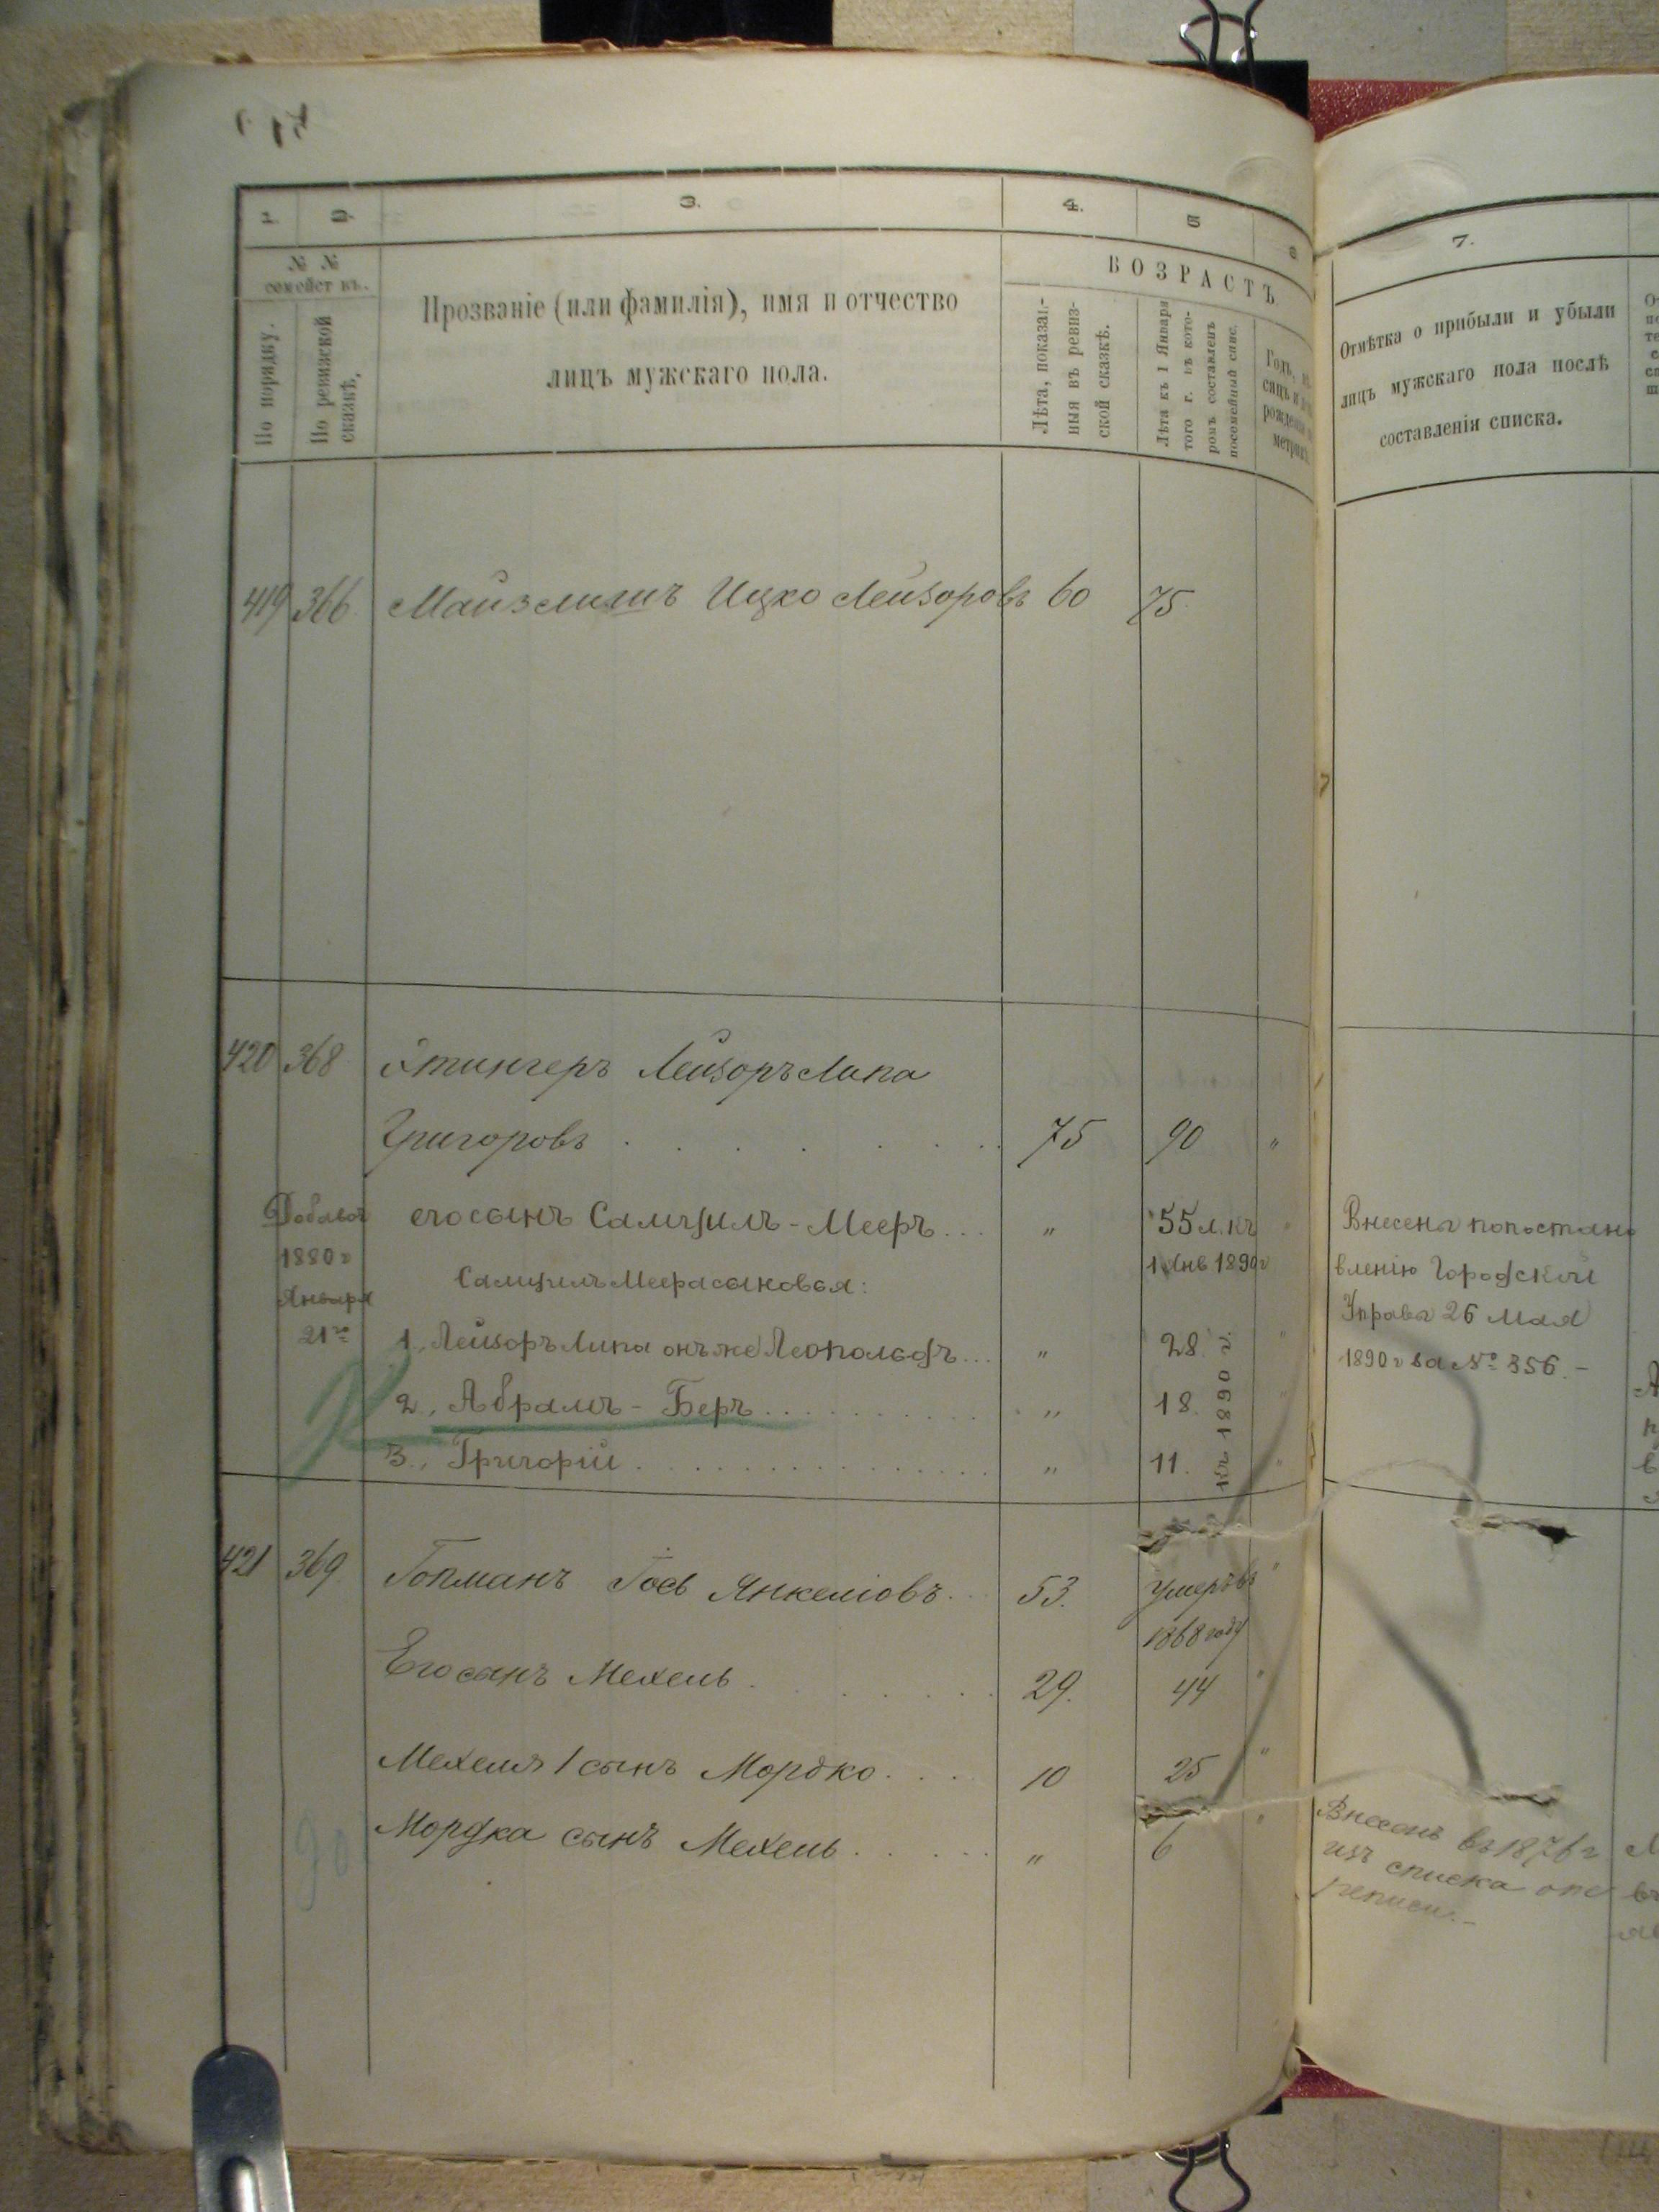 1. 2. 3. 4. 5 6
№ №
семействъ.
По порядку.
По ревизской сказкѣ.
Прозваніе (или фамилія), имя и отчество
лицъ мужскаго пола.
ВОЗРАСТЪ
Лѣта, показан-
ныя въ ревиз-
ской сказкѣ.
Лѣта къ 1 Января
того г. въ кото-
ромъ составленъ
посемейный спис.
Годъ,
рожденія
7.
Отмѣтка о прибыли и убыли
лицъ мужскаго пола послѣ
составленія списка.
419 366 Ицко Лейзоровъ 60 75
420 368 Этингеръ Лейзоръ Липа
Григоровъ . . . . . 75 90 "
Добавоч
1880 г
Января
21го
его сынъ Самуилъ-Мееръ... " 55 л. къ "
1 Янв 1890 г
Самуила Меера сыновья:
1., Лейзоръ Липа онъ же Леопольдъ... " 28 "
2., Абрамъ - Беръ.......... " 18. "
3., Григорій............... " 11. "
къ 1890 г.
Внесены по постано
вленію Городской
Управы 26 мая
1890 г за № 356.-
421 369 Гопманъ Гось Янкеліовъ... 53. Умеръ въ "
1868 году
Его сынъ Мехель . . . . . 29. 44 "
Мехеля 1 сынъ Мордко. . . . 10 25 "
Мордка сынъ Мехель . . . . . " 6 "
Внесенъ въ 1876 г
изъ списка